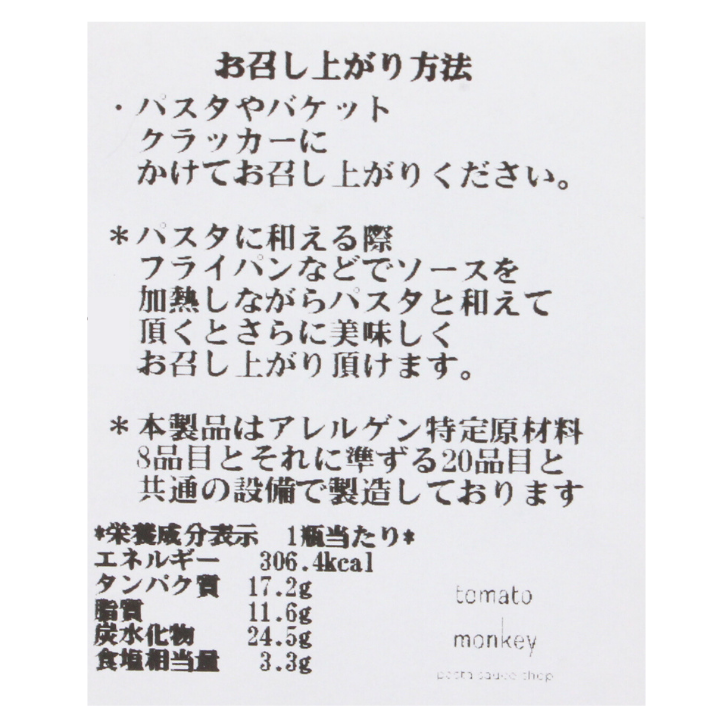 お召し上がり方法
・パスタやバケット
クラッカーに
かけてお召し上がりください。
＊パスタに和える際
フライパンなどでソースを
加熱しながらパスタと和えて
頂くとさらに美味しく
お召し上がり頂けます。
＊本製品はアレルゲン特定原材料
8品目とそれに準ずる20品目と
共通の設備で製造しております
*栄養成分表示　1瓶当たり*
エネルギー　306.4kcal
タンパク質　17.2g
脂質　11.6g
炭水化物　24.5g
食塩相当量　3.3g
tomato
monkey
pasta sauce shop